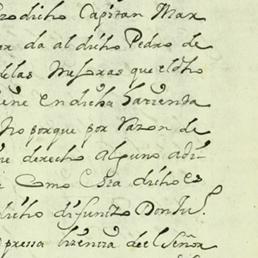 dicho Capitan Mar
da al dicho Pedro de
delas Mejoras que el dho
tiene en dicha hazienda
No porque por Razon de
derecho alguno adi
Como esta dicho es
dicho difunto Don Ju.
expressa lizencia del Señor